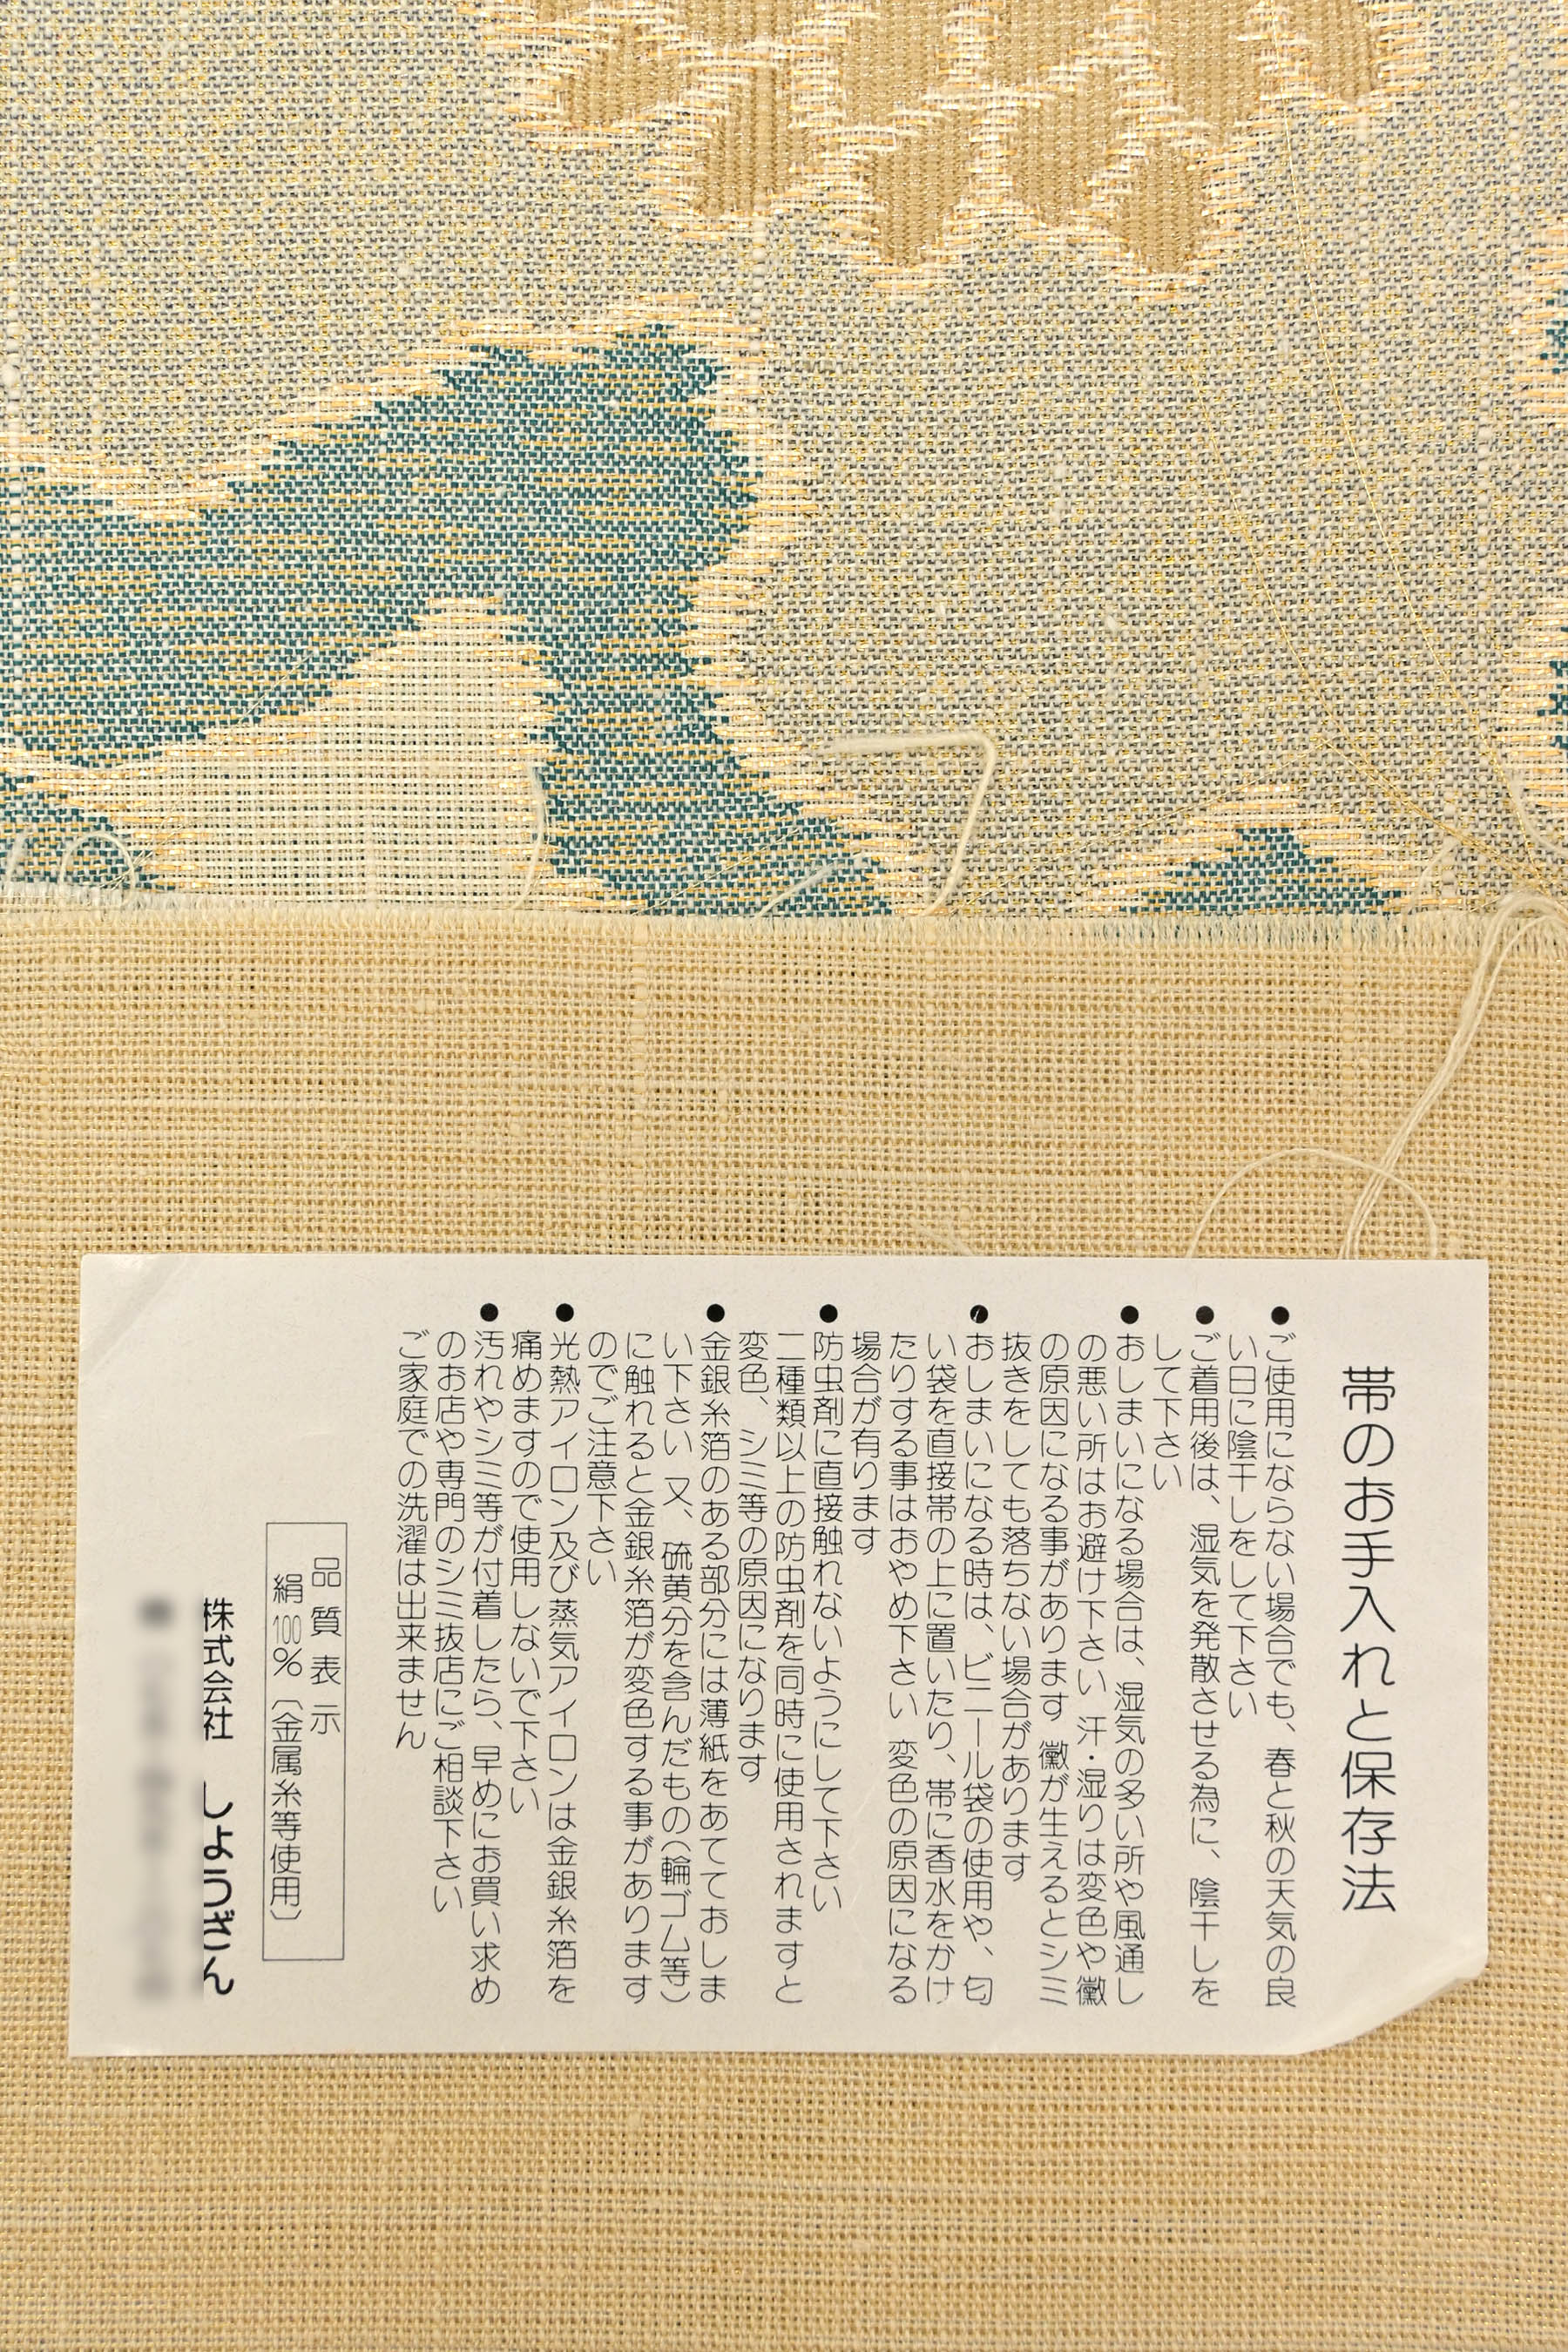 帯のお手入れと保存法
●ご使用にならない場合でも、春と秋の天気の良
い日に陰干しをして下さい
●ご着用後は、湿気を発散させる為に、陰干しを
して下さい
●おしまいになる場合は、湿気の多い所や風通し
の悪い所はお避け下さい 汗・湿りは変色や黴
の原因になる事があります 黴が生えるとシミ
抜きをしても落ちない場合があります
●おしまいになる時は、ビニール袋の使用や、匂
い袋を直接帯の上に置いたり、帯に香水をかけ
たりする事はおやめ下さい 変色の原因になる
場合が有ります
●防虫剤に直接触れないようにして下さい
二種類以上の防虫剤を同時に使用されますと
変色、シミ等の原因になります
●金銀糸箔のある部分には薄紙をあてておしま
い下さい 又、硫黄分を含んだもの(輪ゴム等)
に触れると金銀糸箔が変色する事があります
のでご注意下さい
●光熱アイロン及び蒸気アイロンは金銀糸箔を
痛めますので使用しないで下さい
●汚れやシミ等が付着したら、早めにお買い求め
のお店や専門のシミ抜店にご相談下さい
ご家庭での洗濯は出来ません
品質表示
絹100%〔金属糸等使用〕
株式会社 しょうざん